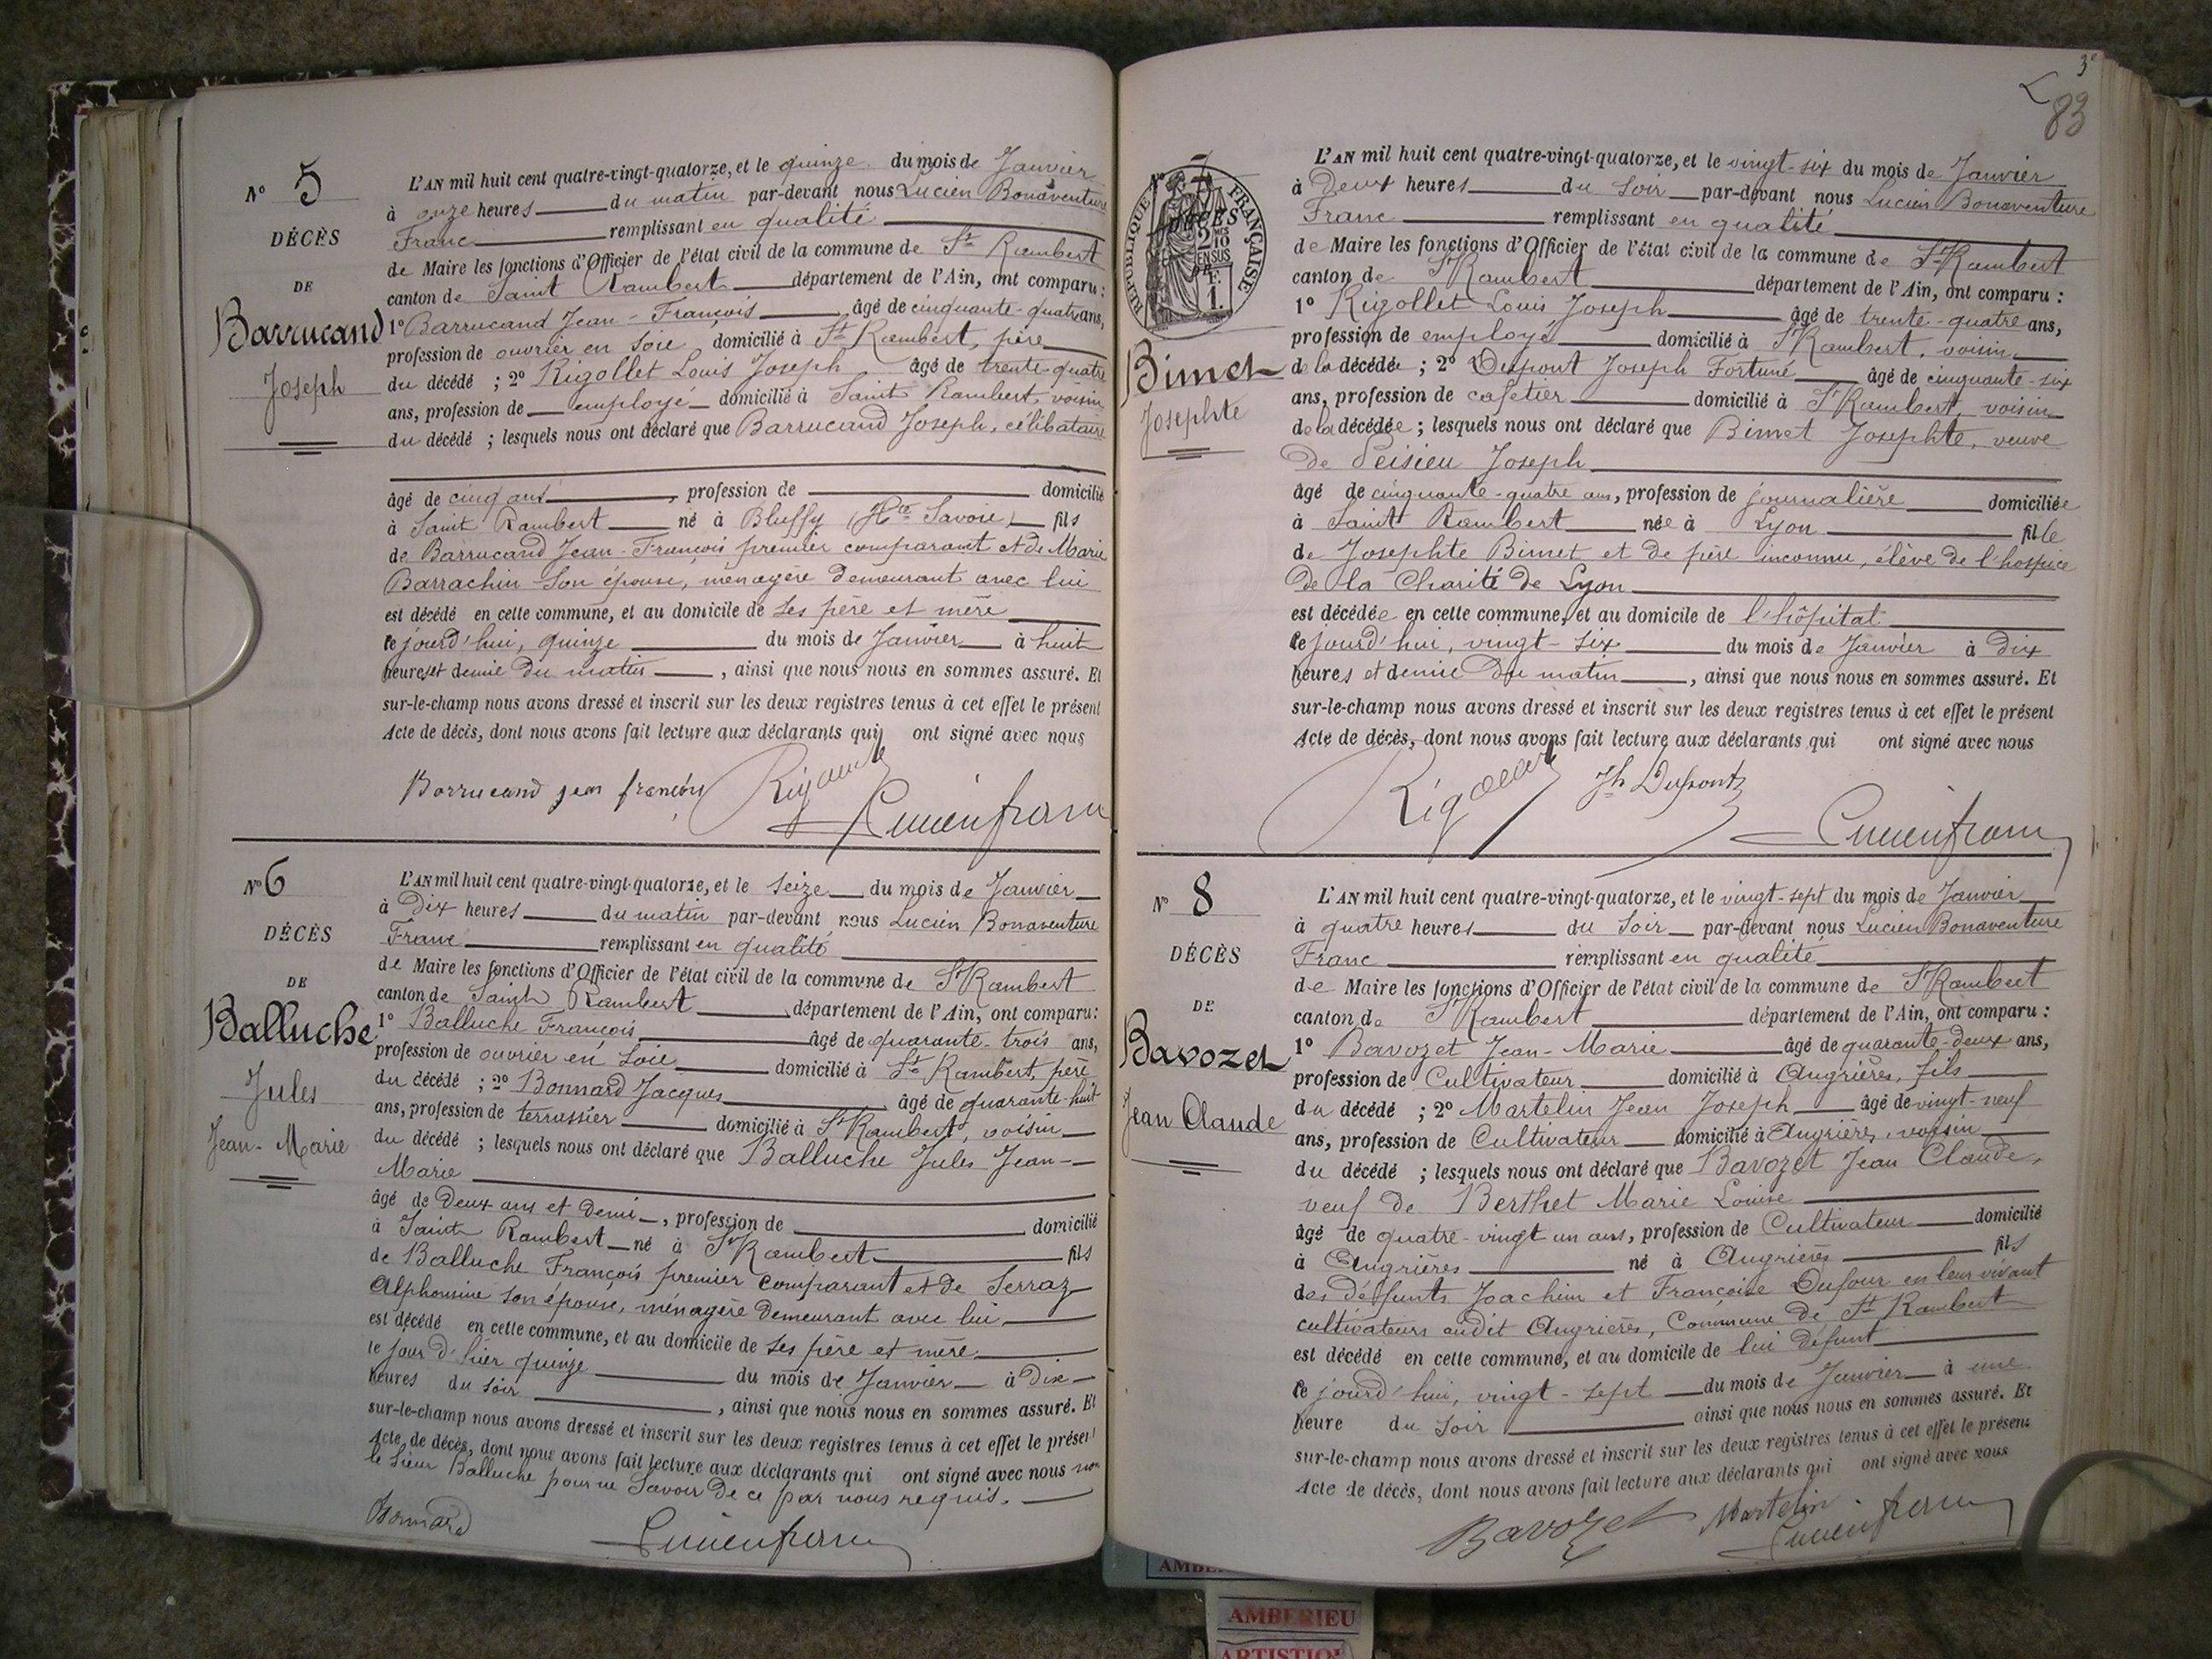 N° 5
DÉCÈS
DE
Barrucand
Joseph
L'AN mil huit cent quatre-vingt-quatorze, et le quinze du mois de Janvier
à onze heures du matin par-devant nous Lucien Bonaventure
Franc remplissant en qualité
de Maire les fonctions d'Officier de l'état civil de la commune de St Rambert
canton de Saint Rambert département de l'Ain, ont comparu :
1° Barrucand Jean-François âgé de cinquante-quatre ans,
profession de ouvrier en soie domicilié à St Rambert, père
du décédé ; 2° Rigollet Louis Joseph âgé de trente-quatre
ans, profession de employé domicilié à Saint Rambert, voisin
du décédé ; lesquels nous ont déclaré que Barrucand Joseph, célibataire
âgé de cinq ans, profession de domicilié
à Saint Rambert né à Bluffy (Hte Savoie) fils
de Barrucand Jean-François premier comparant et de Marie
Barrachin son épouse, ménagère demeurant avec lui
est décédé en cette commune, et au domicile de ses père et mère
le jourd'hui, quinze du mois de Janvier à huit
heures et demie du matin, ainsi que nous nous en sommes assuré. Et
sur-le-champ nous avons dressé et inscrit sur les deux registres tenus à cet effet le présent
Acte de décès, dont nous avons fait lecture aux déclarants qui ont signé avec nous
Barrucand jean françois
Lucien franc
N° 6
DÉCÈS
DE
Balluche
Jules
Jean-Marie
L'AN mil huit cent quatre-vingt-quatorze, et le seize du mois de Janvier
à Dix heures du matin par-devant nous Lucien Bonaventure
Franc remplissant en qualité
de Maire les fonctions d'Officier de l'état civil de la commune de St Rambert
canton de Saint Rambert département de l'Ain, ont comparu :
1° Balluche François âgé de quarante-trois ans,
profession de ouvrier en soie domicilié à St Rambert, père
du décédé ; 2° Bonnard Jacques âgé de quarante-huit
ans, profession de terrassier domicilié à St Rambert, voisin
du décédé ; lesquels nous ont déclaré que Balluche Jules Jean-
Marie
âgé de Deux ans et demi, profession de domicilié
à Saint Rambert né à St Rambert fils
de Balluche François premier comparant et de Serraz
Alphonsine son épouse, ménagère demeurant avec lui
est décédé en cette commune, et au domicile de ses père et mère
le jour d'hier quinze du mois de Janvier à Dix
heures du soir, ainsi que nous nous en sommes assuré. Et
sur-le-champ nous avons dressé et inscrit sur les deux registres tenus à cet effet le présent
Acte de décès, dont nous avons fait lecture aux déclarants qui ont signé avec nous non
le sieur Balluche pour ne savoir de ce par nous requis.
Bonnard
Lucien franc
3e
83
N° 7
RÉPUBLIQUE FRANÇAISE
DÉCÈS
2 10
EN SUS
DE
F.
1.
Bimet
Josephte
L'AN mil huit cent quatre-vingt-quatorze, et le vingt-six du mois de Janvier
à Deux heures du soir par-devant nous Lucien Bonaventure
Franc remplissant en qualité
de Maire les fonctions d'Officier de l'état civil de la commune de St Rambert
canton de St Rambert département de l'Ain, ont comparu :
1° Rigollet Louis Joseph âgé de trente-quatre ans,
profession de employé domicilié à St Rambert, voisin
de la décédée ; 2° Dupont Joseph Fortuné âgé de cinquante-six
ans, profession de cafetier domicilié à St Rambert, voisin
de la décédée ; lesquels nous ont déclaré que Bimet Josephte, veuve
de Peisieu Joseph
âgé de cinquante-quatre ans, profession de journalière domiciliée
à Saint Rambert née à Lyon fille
de Josephte Bimet et de père inconnu, élève de l'hospice
de la Charité de Lyon
est décédée en cette commune, et au domicile de l'hôpital
le jourd'hui, vingt-six du mois de Janvier à Dix
heures et demie du matin, ainsi que nous nous en sommes assuré. Et
sur-le-champ nous avons dressé et inscrit sur les deux registres tenus à cet effet le présent
Acte de décès, dont nous avons fait lecture aux déclarants qui ont signé avec nous
Jh Dupont
Lucien franc
N° 8
DÉCÈS
DE
Bavozet
Jean Claude
L'AN mil huit cent quatre-vingt-quatorze, et le vingt-sept du mois de Janvier
à quatre heures du soir par-devant nous Lucien Bonaventure
Franc remplissant en qualité
de Maire les fonctions d'Officier de l'état civil de la commune de St Rambert
canton de St Rambert département de l'Ain, ont comparu :
1° Bavozet Jean-Marie âgé de quarante-deux ans,
profession de Cultivateur domicilié à Angrières, fils
du décédé ; 2° Martelin Jean Joseph âgé de vingt-neuf
ans, profession de Cultivateur domicilié à Angrières, voisin
du décédé ; lesquels nous ont déclaré que Bavozet Jean Claude,
veuf de Berthet Marie Louise
âgé de quatre-vingt un ans, profession de Cultivateur domicilié
à Angrières né à Angrières fils
des défunts Joachim et Françoise Dufour en leur vivant
cultivateurs audit Angrières, Commune de St Rambert
est décédé en cette commune, et au domicile de lui défunt
le jourd'hui, vingt-sept du mois de Janvier à une
heure du soir ainsi que nous nous en sommes assuré. Et
sur-le-champ nous avons dressé et inscrit sur les deux registres tenus à cet effet le présent
Acte de décès, dont nous avons fait lecture aux déclarants qui ont signé avec nous
Bavozet Martelin
Lucien franc
AMBERIEU